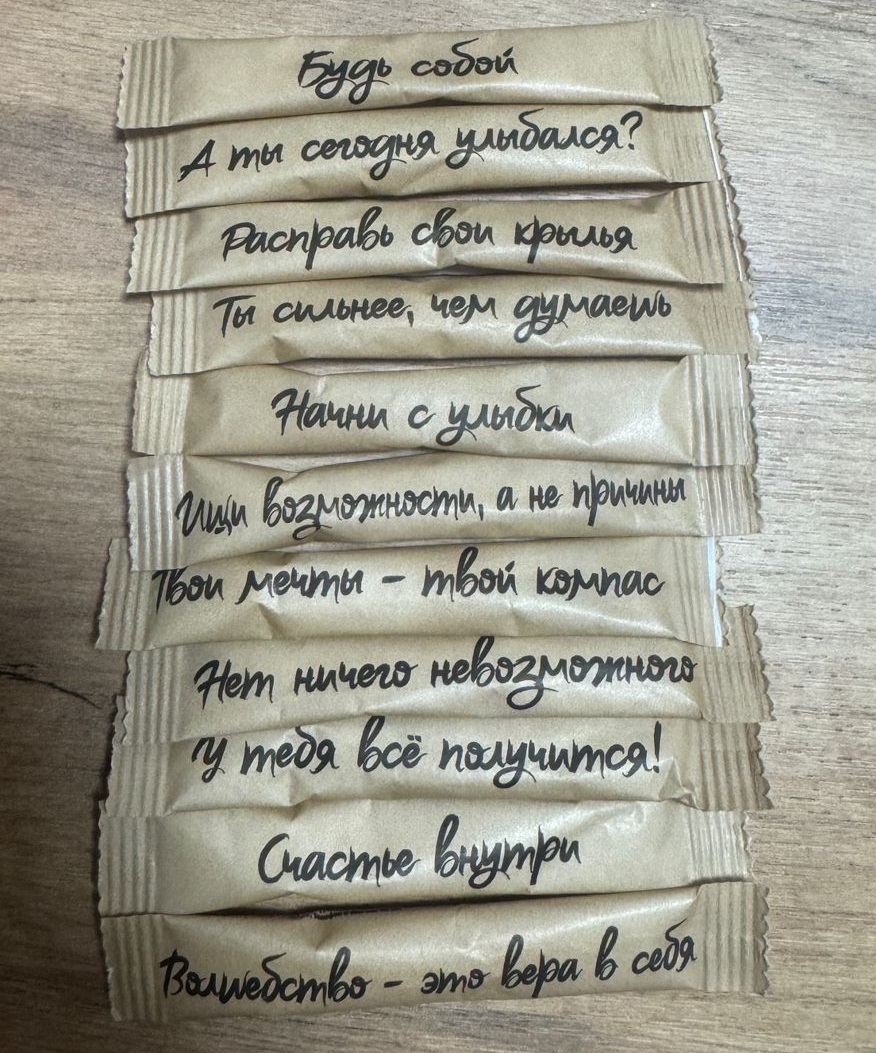 Будь собой
А ты сегодня улыбался?
Расправь свои крылья
Ты сильнее, чем думаешь
Начни с улыбки
Ищи возможности, а не причины
Твои мечты – твой компас
Нет ничего невозможного
У тебя всё получится!
Счастье внутри
Волшебство – это вера в себя